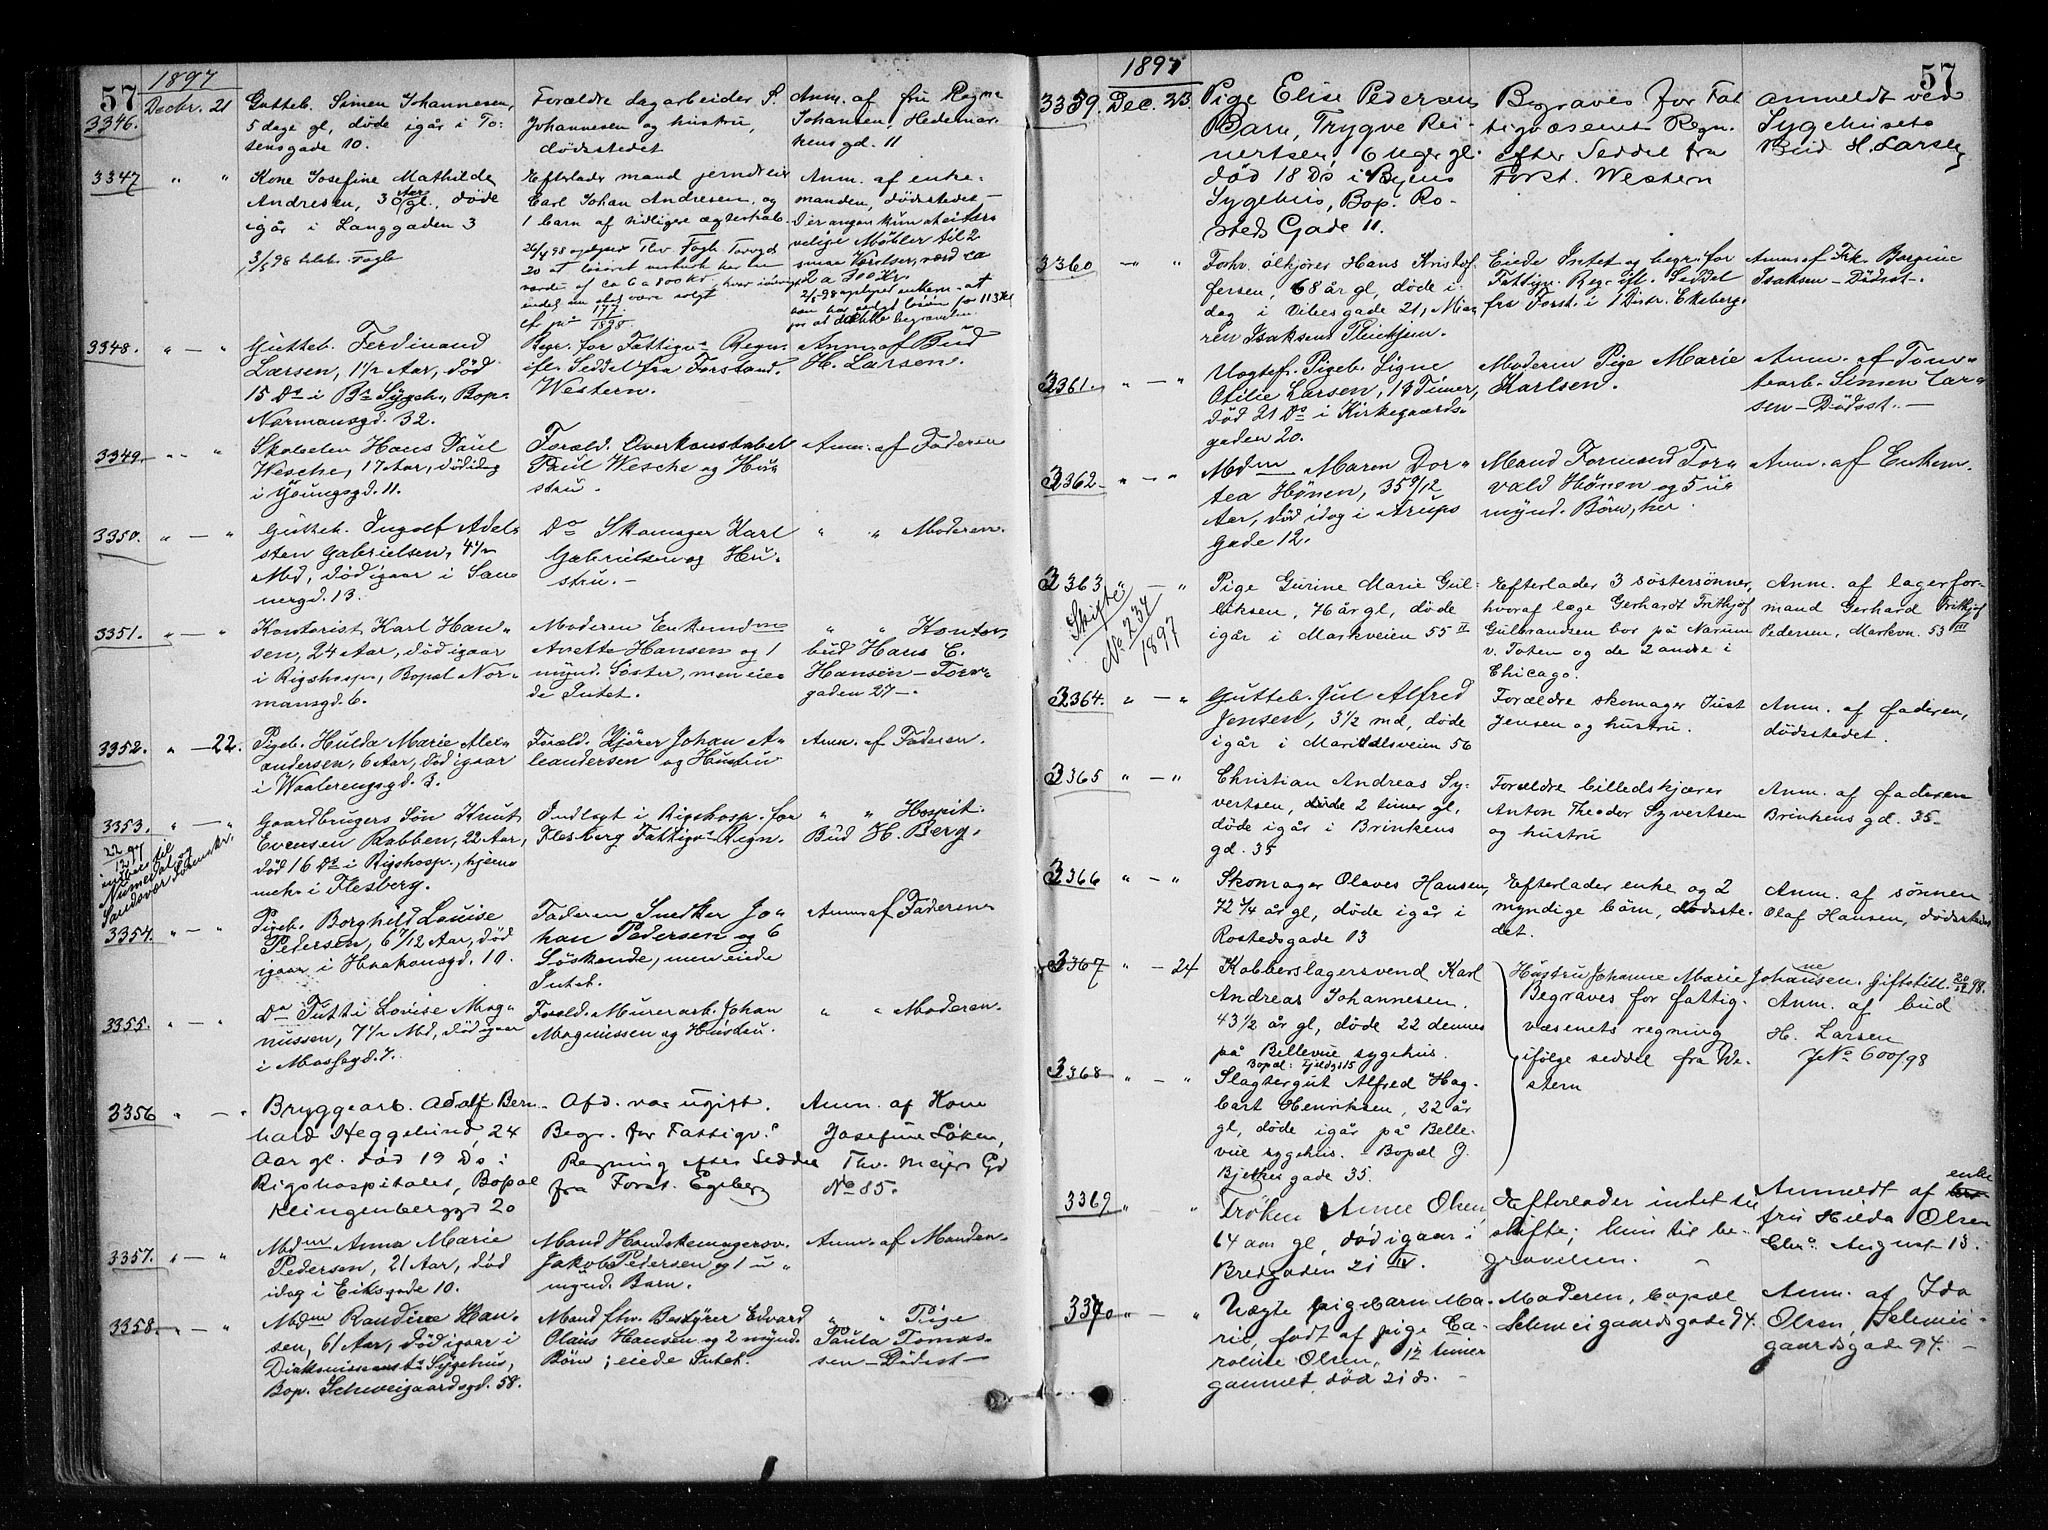 57
1897
3346.
Decbr. 21
Gutteb. Simen Johannesen,
5 dage gl, døde igår i To-
tensgade 10.
Forældre dagarbeider S.
Johannesen og hustru,
dødsstedet
Anm. af fru Regine
Johansen, Hedemar-
kensgd. 11
3347
Kone Josefine Mathilde
Andresen, 30 Aar gl., døde
igår i Langgaden 3
Efterlader mand jerndreier
Carl Johan Andresen, og
1 barn af tidligere ægteskab.
Anm. af enke-
manden, dødsstedet
cf No 177/1898
3348.
Gutteb. Ferdinand
Larsen, 1 1/2 Aar, død
15 Ds i Bs Sygeh., Bop.
Normansgd. 32.
Begr. for Fattigvs Regn.
ifl. Seddel fra Forstand.
Western.
Anm. af Bud
H. Larsen.
3349.
Skoleelev Hans Paul
Wesche, 17 Aar, død idag
i Youngsgd. 11.
Foræld. Overkonstabel
Paul Wesche og Hu-
stru.
Anm. af Faderen
3350.
Gutteb. Ingolf Adel-
sten Gabrielsen, 4 1/2
Md, død igaar i San-
nergd. 13.
Do Skomager Karl
Gabrielsen og Hu-
stru. -
" " Moderen.
3351.
Kontorist Karl Han-
sen, 24 Aar, død igaar
i Rigshosp., Bopæl Nor-
mansgd. 6.
Moderen Enkemdme
Anette Hansen og 1
mynd. Søster, men eie-
de Intet.
" " Kontor
bud Hans C.
Hansen - Torv-
gaden 27 -
3352.
" - 22.
Pigeb. Hulda Marie Alex-
andersen, 6 Aar, død igaar
i Waalerengsgd. 3.
Foræld. Kjører Johan A-
leandersen og Hustru
Anm. af Faderen.
3353.
Gaardbrugers Søn Knut
Evensen Rabben, 22 Aar,
død 16 Ds i Rigshosp., hjem-
meh. i Flesberg.
Indlagt i Rigshosp. for
Flesberg Fattigvs Regn.
" " Hospit.
Bud H. Berg.
3354.
Pigeb. Borghild Louise
Pedersen, 6 7/12 Aar, død
igaar i Haakonsgd. 10.
Faderen Snedker Jo-
han Pedersen og 6
Søskende, men eiede
Intet.
Anm. af Faderen
3355.
Do Tutti Lovise Mag-
nussen, 7 1/2 Md, død igaar
i Mossegd. 7.
Foræld. Murerarb. Johan
Magnussen og Hustru.
" " Moderen.
3356
Bryggearb. Adolf Bern-
hard Heggelund, 24
Aar gl. død 19 Ds i
Rigshospitalet, Bopæl
Klingenberggd 20
Afd. var ugift.
Begr. for Fattigv.s
Regning efter Seddel
fra Forst. Egeberg
Anm. af Kone
Josefine Løken,
Thv. Meyers Gd
No 85.
3357.
Mdme Anna Marie
Pedersen, 21 Aar, død
idag i Eiksgade 10.
Mand Handskemagersv.
Jakob Pedersen og 1 u-
mynd. Barn.
Anm. af Manden
3358.
Mdme Randine Han-
sen, 61 Aar, død igaar i
Diakonissenanst. Sygehus,
Bop. Schweigaardsgd. 58.
Mand fhv. Bestyrer Edvard
Olaus Hansen og 2 mynd.
Børn; eiede Intet.
" " Pige
Paula Tomas-
sen - Dødsst -
57
1897
3359.
Dec. 23.
Pige Elise Pedersens
Barn, Trygve Rei-
nertsen, 6 Uger gl.
død 18 Ds i Byens
Sygehus, Bop. Ro-
steds Gade 11.
Begraves for Fat
tigvæsenets Regn.
efter Seddel fra
Forst. Western
Anmeldt ved
Sygehusets
Bud H. Larsen
3360
Forhv. ølkjører Hans Kristof-
fersen, 68 år gl, døde i
dag i Vibesgade 21, Ma-
ren Isaksens Pleiehjem.
Eiede Intet og begr. for
Fattigv. Reg. ifl. Seddel
fra Forst. i 1 Distr. Ekeberg.
Anm. af Frk. Bergine
Isaksen - Dødsst -.
3361.
Uægtef. Pigeb. Signe
Otilie Larsen, 13 Timer,
død 21 Ds i Kirkegaards-
gaden 20.
Moderen Pige Marie
Karlsen.
Anm. af Tom-
tearb. Simen Lar-
sen - Dødsst. -
3362.
Mdme Maren Dor-
tea Hønen, 35 9/12
Aar, død idag i Arups
Gade 12.
Mand Formand Tor-
vald Hønen og 5 u-
mynd. Børn, her.
Anm. af Enkem.
3363
Skifte
No 234
1897
Pige Gurine Marie Gul-
liksen, 76 år gl, døde
igår i Markveien 55 II
Efterlader 3 søstersønner,
hvoraf læge Gerhardt Frithjof
Gulbrandsen bor på Narum
v. Toten og de 2 andre i
Chicago.
Anm. af lagerfor-
mand Gerhard Frithjof
Pedersen, Markvn. 53 III
3364.
Gutteb. Jul Alfred
Jensen, 3 1/2 md, døde
igår i Maridalsveien 56
Forældre skomager Just
Jensen og hustru.
Anm. af faderen,
dødsstedet.
3365
Christian Andreas Sy-
vertsen, døde 2 timer gl,
døde igår i Brinkens
gd. 35
Forældre billedskjærer
Anton Theodor Syvertsen
og hustru
Anm. af faderen
Brinkens gd. 35-
3366
Skomager Olaves Hansen,
72 1/4 år gl, døde igår i
Rostedsgade 13
Efterlader enke og 2
myndige børn, dødsste-
det.
Anm. af sønnen
Olaf Hansen, dødsstedet
3367
" - 24
Kobberslagersvend Karl
Andreas Johannesen.
43 1/2 år gl, døde 22 dennes
på Bellevue sygehus.
Hustru Johanne Marie Johansen.
Begraves for fattig-
væsenets regning
ifølge seddel fra We-
stern
Anm. af bud
H. Larsen
JNo 600/98
3368
Slagtergut Alfred Hag-
bart Henriksen, 22 år
gl, døde igår på Belle-
vue sygehus. - Bopæl J.
Bjelkes gade 35.
3369
Frøken Anne Olsen
64 aar gl, død igaar i
Bredgaden 21 IV.
Efterlader intet til
skifte; kun til be-
gravelsen.
Anmeldt af enke
fru Hilda Olsen
Chra. August 13.
3370
Uægte pigebarn Ma-
rie, født af pige Ca-
roline Olsen, 12 timer
gammel, død 21 ds. -
Moderen, bopæl
Schweigaardsgade 94.
Anm. af Ida
Olsen, Schwei-
gaardsgade 94. -